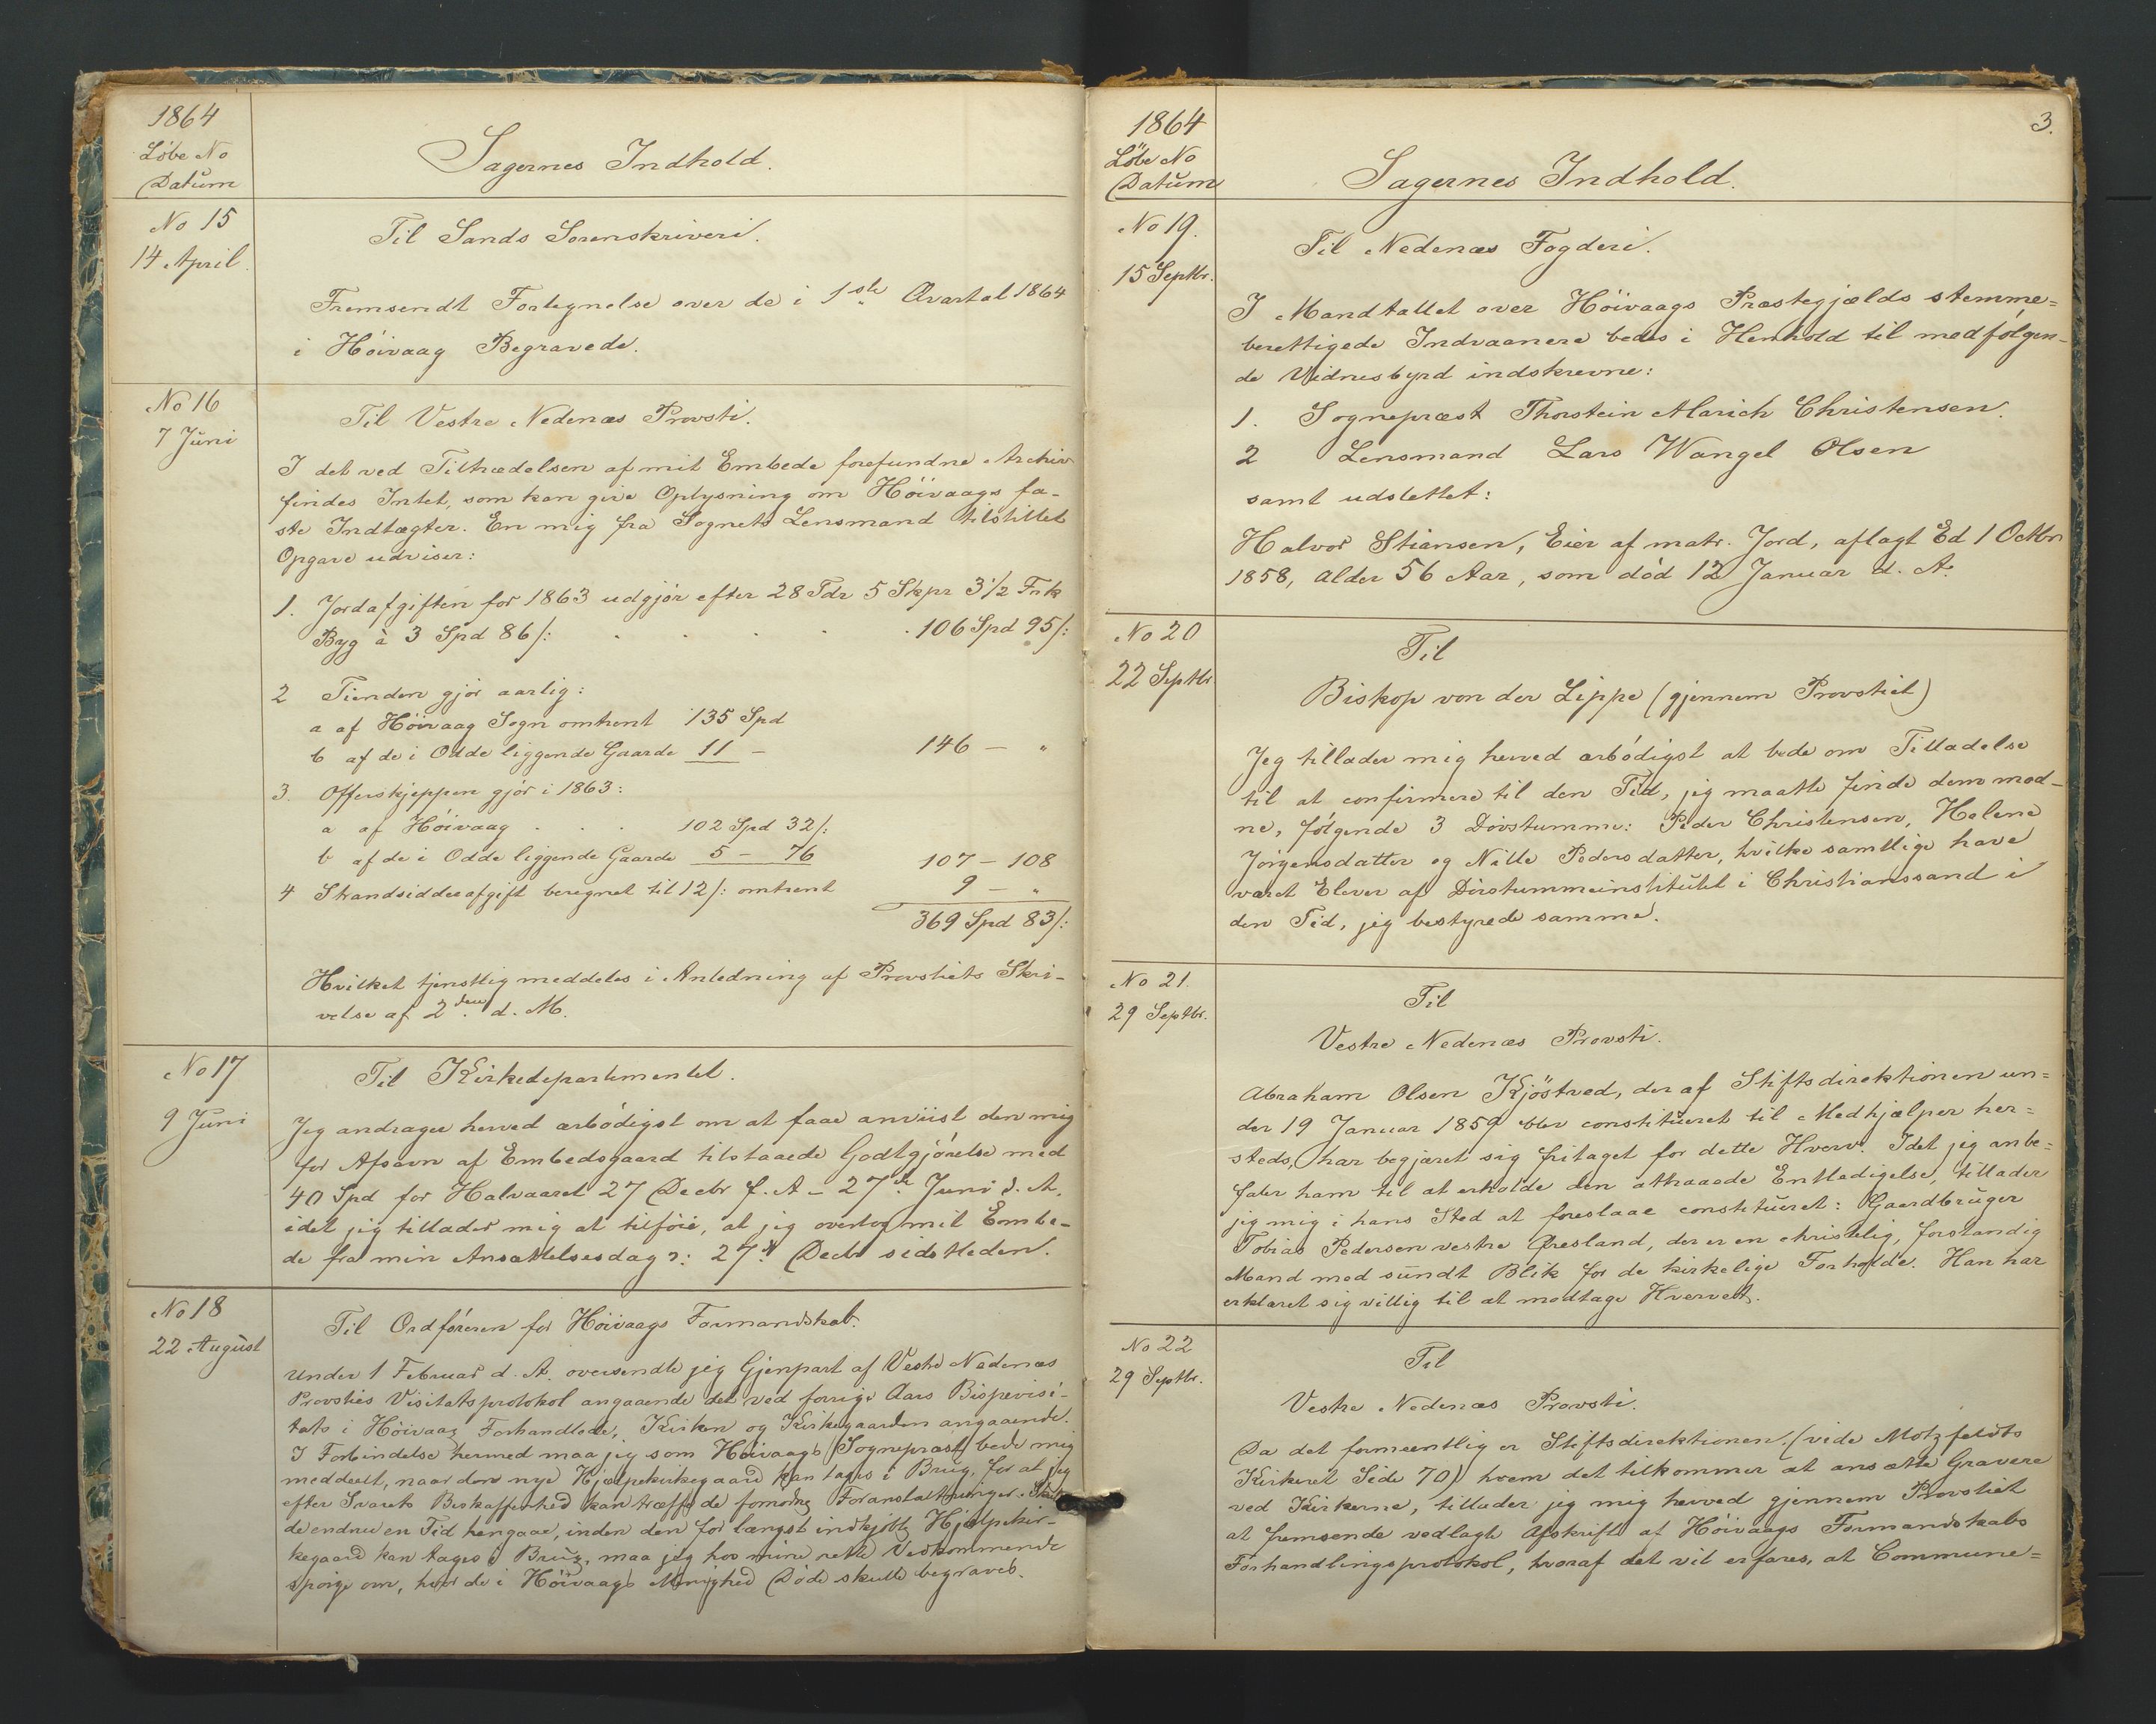 1864
Løbe No
Datum
Sagernes Indhold.
No 15
14 April.
Til Sands Sorenskriveri.
Fremsendt Fortegnelse over de i 1ste Qvartal 1864
i Høivaag Begravede.
No 16
7 Juni
Til Vestre Nedenæs Provsti.
I det ved Tiltrædelsen af mit Embede forefundne Archiv
findes Intet, som kan give Oplysning om Høivaags fa-
ste Indtægter. En mig fra Sognets Lensmand tilstillet
Opgave udviser:
1. Jordafgiften for 1863 udgjør efter 28 Tdr 5 Skpr 3 1/2 Frk
Byg à 3 Spd 86 /: . . . . . 106 Spd 95 /:
2 Tienden gjør aarlig:
a af Høivaag Sogn omtrent 135 Spd
b af de i Odde liggende Gaarde 11 — 146 — "
3. Offerskjeppen gjør i 1863:
a af Høivaag . . . 102 Spd 32 /:
b af de i Odde liggende Gaarde 5 — 76 107 — 108
4 Strandsidderafgift beregnet til 12 /: omtrent 9 — "
369 Spd 83 /:
Hvilket tjenstlig meddeles i Anledning af Provstiets Skri-
velse af 2den d. M.
No 17
9 Juni
Til Kirkedepartementet.
Jeg andrager herved ærbødigst om at faae anviist den mig
for Afsavn af Embedsgaard tilstaaede Godtgjørelse med
40 Spd for Halvaaret 27 Decbr f. A – 27de Juni d. A,
idet jeg tillader mig at tilføie, at jeg overtog mit Embe-
de fra min Ansættelsesdag ɔ: 27de Decbr sidstleden.
No 18
22 August
Til Ordføreren for Høivaags Formandskab.
Under 1 Februar d. A. oversendte jeg Gjenpart af Vestre Nedenæs
Provsties Visitatsprotokol angaaende det ved forrige Aars Bispevisi-
tats i Høivaag Forhandlede, Kirken og Kirkegaarden angaaende.
I Forbindelse hermed maa jeg som Høivaags Sognepræst bede mig
meddeelt, naar den nye Hjælpekirkegaard kan tages i Brug, for at jeg
efter Svarets Beskaffenhed kan træffe de fornødne Foranstaltninger. Skul-
de endnu en Tid hengaae, inden den for længst indkjøbte Hjælpekir-
kegaard kan tages i Brug, maa jeg hos mine rette Vedkommende
spørge om, hvor de i Høivaags Menighed Døde skulle begraves.
1864
Løbe No
Datum
3.
Sagernes Indhold.
No 19.
15 Septbr.
Til Nedenæs Fogderi.
I Mandtallet over Høivaags Præstegjælds stemme=
berettigede Indvaanere bedes i Henhold til medfølgen-
de Vidnesbyrd indskrevne:
1. Sognepræst Thorstein Alarich Christensen.
2 Lensmand Lars Wangel Olsen
samt udslettet:
Halvor Stiansen, Eier af matr. Jord, aflagt Ed 1 Octbr
1858, Alder 56 Aar, som død 12 Januar d. A.
No 20
22 Septbr
Til
Biskop von der Lippe (gjennem Provstiet)
Jeg tillader mig herved ærbødigst at bede om Tilladelse
til at confirmere til den Tid, jeg maatte finde dem mod-
ne, følgende 3 Døvstumme: Peder Christensen, Helene
Jørgensdatter og Nille Pedersdatter, hvilke samtlige have
været Elever af Døvstummeinstitutet i Christianssand i
den Tid, jeg bestyrede samme.
No 21.
29 Septbr.
Til
Vestre Nedenæs Provsti.
Abraham Olsen Kjøstved, der af Stiftsdirektionen un=
der 19 Januar 1859 blev constitueret til Medhjælper her=
steds, har begjæret sig fritaget for dette Hverv. Idet jeg anbe=
faler ham til at erholde den attraaede Entledigelse, tillader
jeg mig i hans Sted at foreslaae constitueret: Gaardbruger
Tobias Pedersen vestre Øresland, der er en christelig, forstandig
Mand med sundt Blik for de kirkelige Forholde. Han har
erklæret sig villig til at modtage Hvervet.
No 22
29 Septbr.
Til
Vestre Nedenæs Provsti.
Da det formeentlig er Stiftsdirektionen (vide Motzfeldts
Kirkeret Side 70) hvem det tilkommer at ansætte Gravere
ved Kirkerne, tillader jeg mig herved gjennem Provstiet
at fremsende vedlagte Afskrift af Høivaags Formandskabs
Forhandlingsprotokol, hvoraf det vil erfares, at Commune=